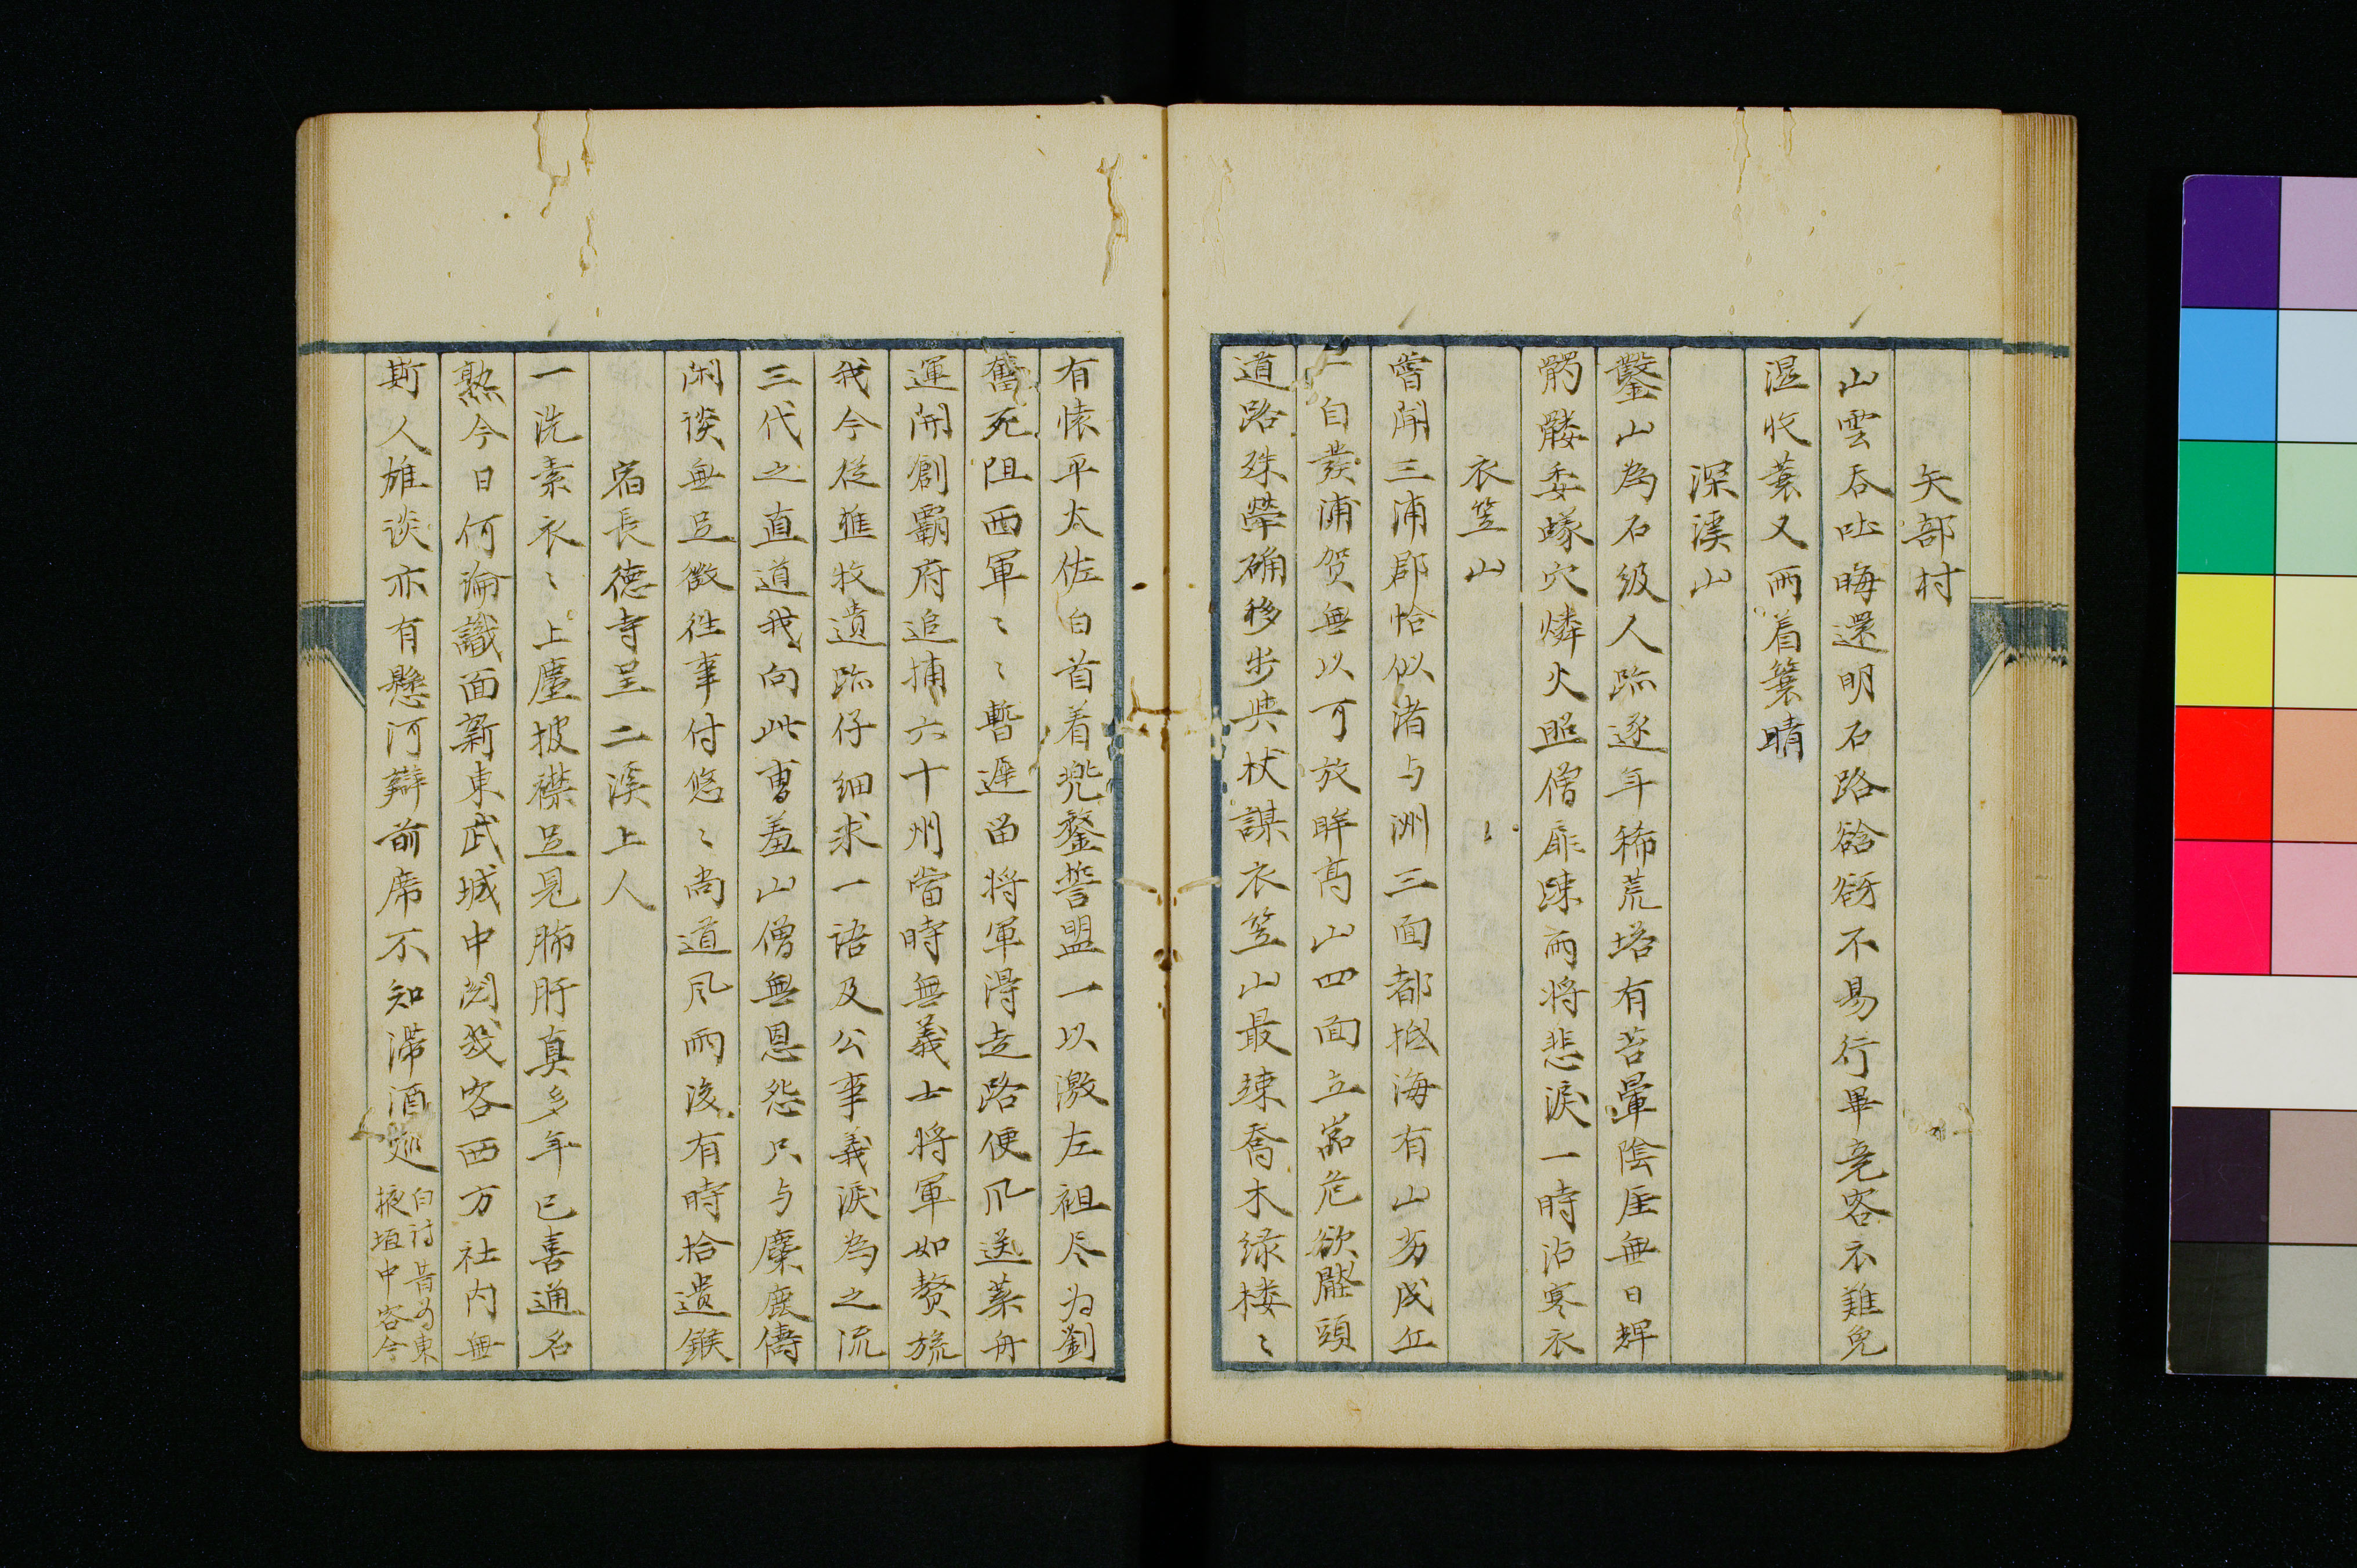 矢部村
山雲吞吐晦還明石路谽谺不易行畢竟客衣難免
湿收蓑又雨着蓑晴
深溪山
鑿山為石級人跡逐年稀荒塔有苔暈陰厓無日輝
髑髏委隊穴燐火照僧扉疎雨将悲淚一時沾寒衣
衣笠山
嘗聞三浦郡恰似渚与洲三面都抵海有山多成丘
一自発浦賀無以可放眸高山四面立嵓危欲壓頭
道路殊犖确移步與杖謀衣笠山最竦喬木緑楼〻
有懐平太佐白首着兜鍪誓盟一以激左袒尽为劉
奮死阻西軍〻〻暫遅留将軍淂走路便风送葉舟
運開創覇府追捕六十州當時無義士将軍如贅旒
我今從進牧遺跡仔細求一语及公事義淚為之流
三代之直道我向此曹羞山僧無恩怨只与麋鹿儔
闲谈無足徴徃事付悠〻尚道风雨後有時拾遗鏃
宿長德寺呈二溪上人
一洗素衣〻上塵披襟足見肺肝真多年已喜通名
熟今日何論識面新東武城中閲幾客西方社内無
斯人雄谈亦有懸河辯前席不知滞酒巡白詩昔为東
掖垣中客今